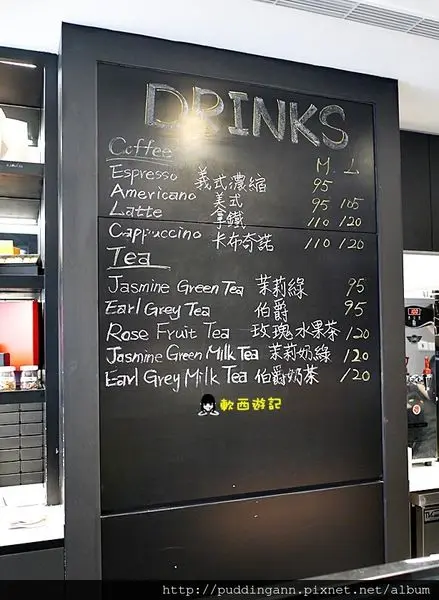 DRINKS
Coffee M. L
Espresso 義式濃縮 95
Americano 美式 95 105
Latte 拿鐵 110 120
Cappuccino 卡布奇諾 110 120
Tea
Jasmine Green Tea 茉莉綠 95
Earl Grey Tea 伯爵 95
Rose Fruit Tea 玫瑰水果茶 120
Jasmine Green Milk Tea 茉莉奶綠 120
Earl Grey Milk Tea 伯爵奶茶 120
軟西遊記
http://puddingann.pixnet.net/album